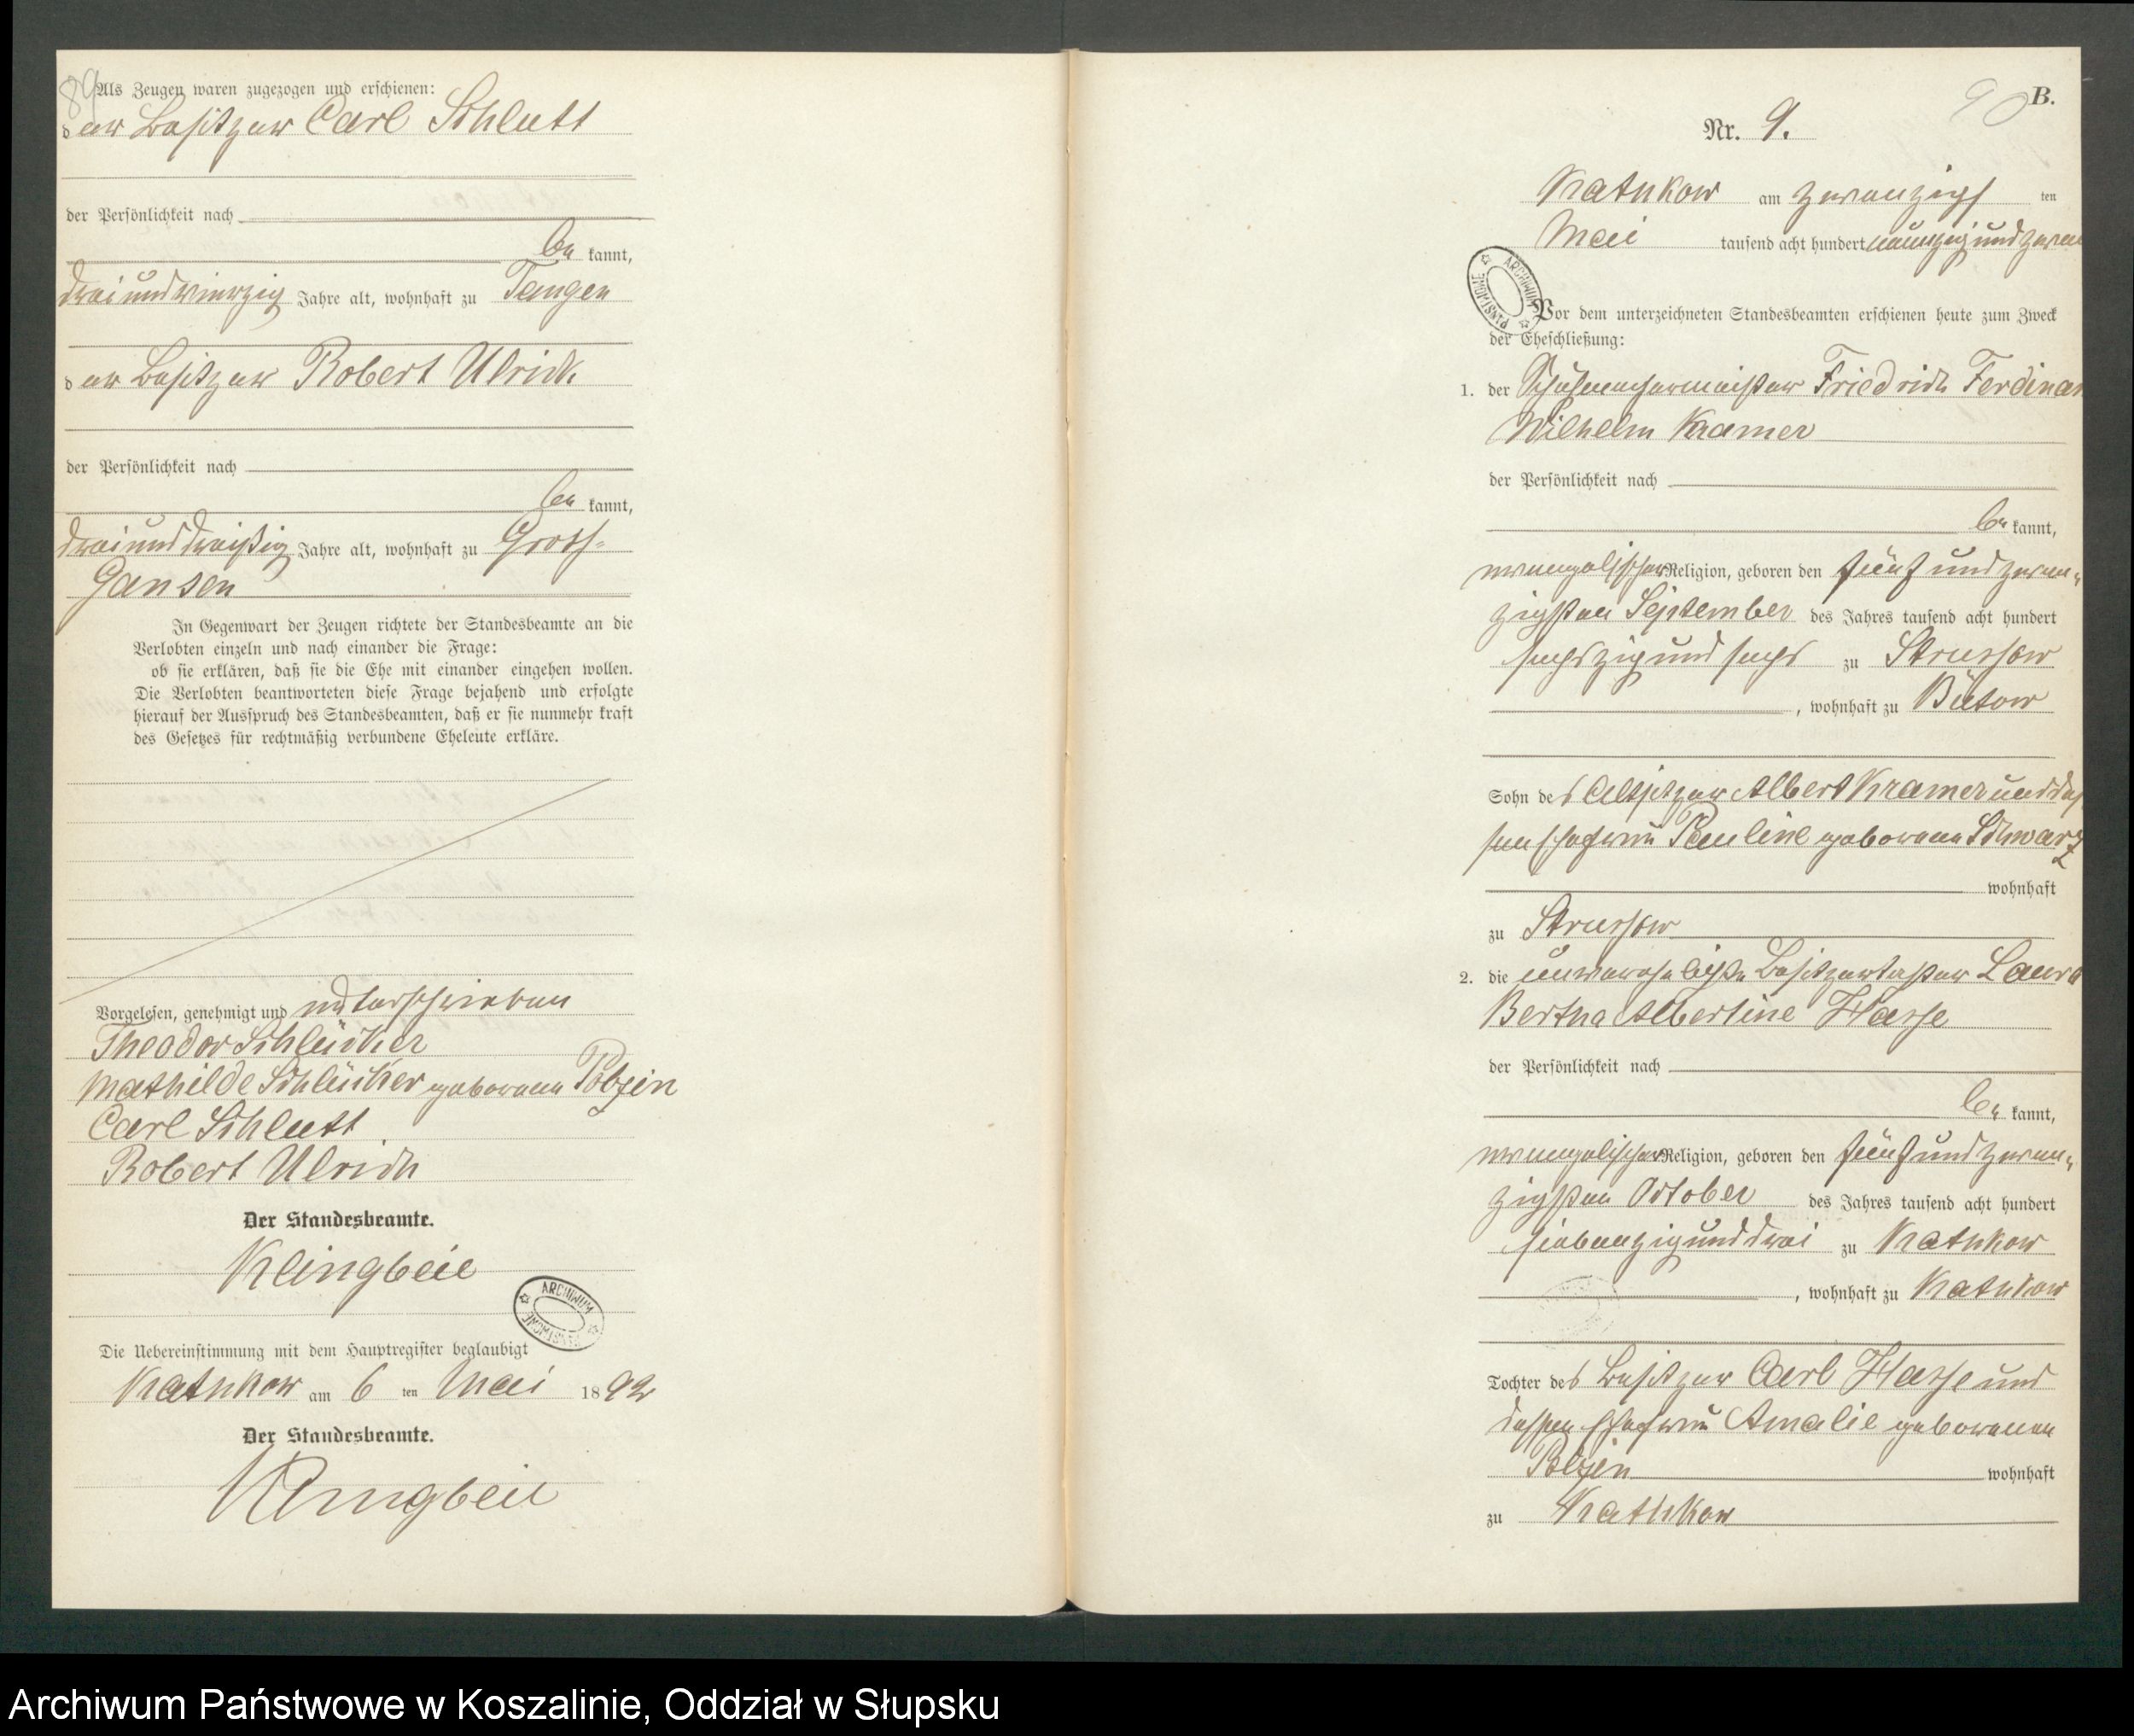 89
Als Zeugen waren zugezogen und erschienen:
der Besitzer Carl Schlutt
der Persönlichkeit nach
be kannt,
dreiundvierzig Jahre alt, wohnhaft zu Tangen
der Besitzer Robert Ulrich
der Persönlichkeit nach
be kannt,
dreiunddreißig Jahre alt, wohnhaft zu Gross-
Gansen
In Gegenwart der Zeugen richtete der Standesbeamte an die
Verlobten einzeln und nach einander die Frage:
ob sie erklären, daß sie die Ehe mit einander eingehen wollen.
Die Verlobten beantworteten diese Frage bejahend und erfolgte
hierauf der Ausspruch des Standesbeamten, daß er sie nunmehr kraft
des Gesetzes für rechtmäßig verbundene Eheleute erkläre.
Vorgelesen, genehmigt und unterschrieben
Theodor Schlücker
Mathilde Schlücker geborene Pobzin
Carl Schlutt
Robert Ulrich
Der Standesbeamte.
Klingbeil
ARCHIWUM PAŃSTWOWE
Die Uebereinstimmung mit dem Hauptregister beglaubigt
Kathkow am 6 ten Mai 1892
Der Standesbeamte.
Klingbeil
90
B.
Nr. 9.
Kathkow am zwanzigs ten
Mai tausend acht hundert neunzig und zwei
ARCHIWUM PAŃSTWOWE
Vor dem unterzeichneten Standesbeamten erschienen heute zum Zweck
der Eheschließung:
1. der Schuhmachermeister Friedrich Ferdinan
Wilhelm Kramer
der Persönlichkeit nach
be kannt,
evangelischer Religion, geboren den fünf und zwan-
zigsten September des Jahres tausend acht hundert
sechszig und sechs zu Strussow
, wohnhaft zu Bütow
Sohn des Altsitzer Albert Kramer und des
sen Ehefrau Pauline geborene Schwarz
wohnhaft
zu Strussow
2. die unverehelichte Besitzertochter Laura
Bertha Albertine Hasse
der Persönlichkeit nach
be kannt,
evangelischer Religion, geboren den fünf und zwan-
zigsten October des Jahres tausend acht hundert
siebenzig und drei zu Kathkow
, wohnhaft zu Kathkow
Tochter des Besitzer Carl Hasse und
dessen Ehefrau Amalie geborenen
Pobzin wohnhaft
zu Kathkow
Archiwum Państwowe w Koszalinie, Oddział w Słupsku